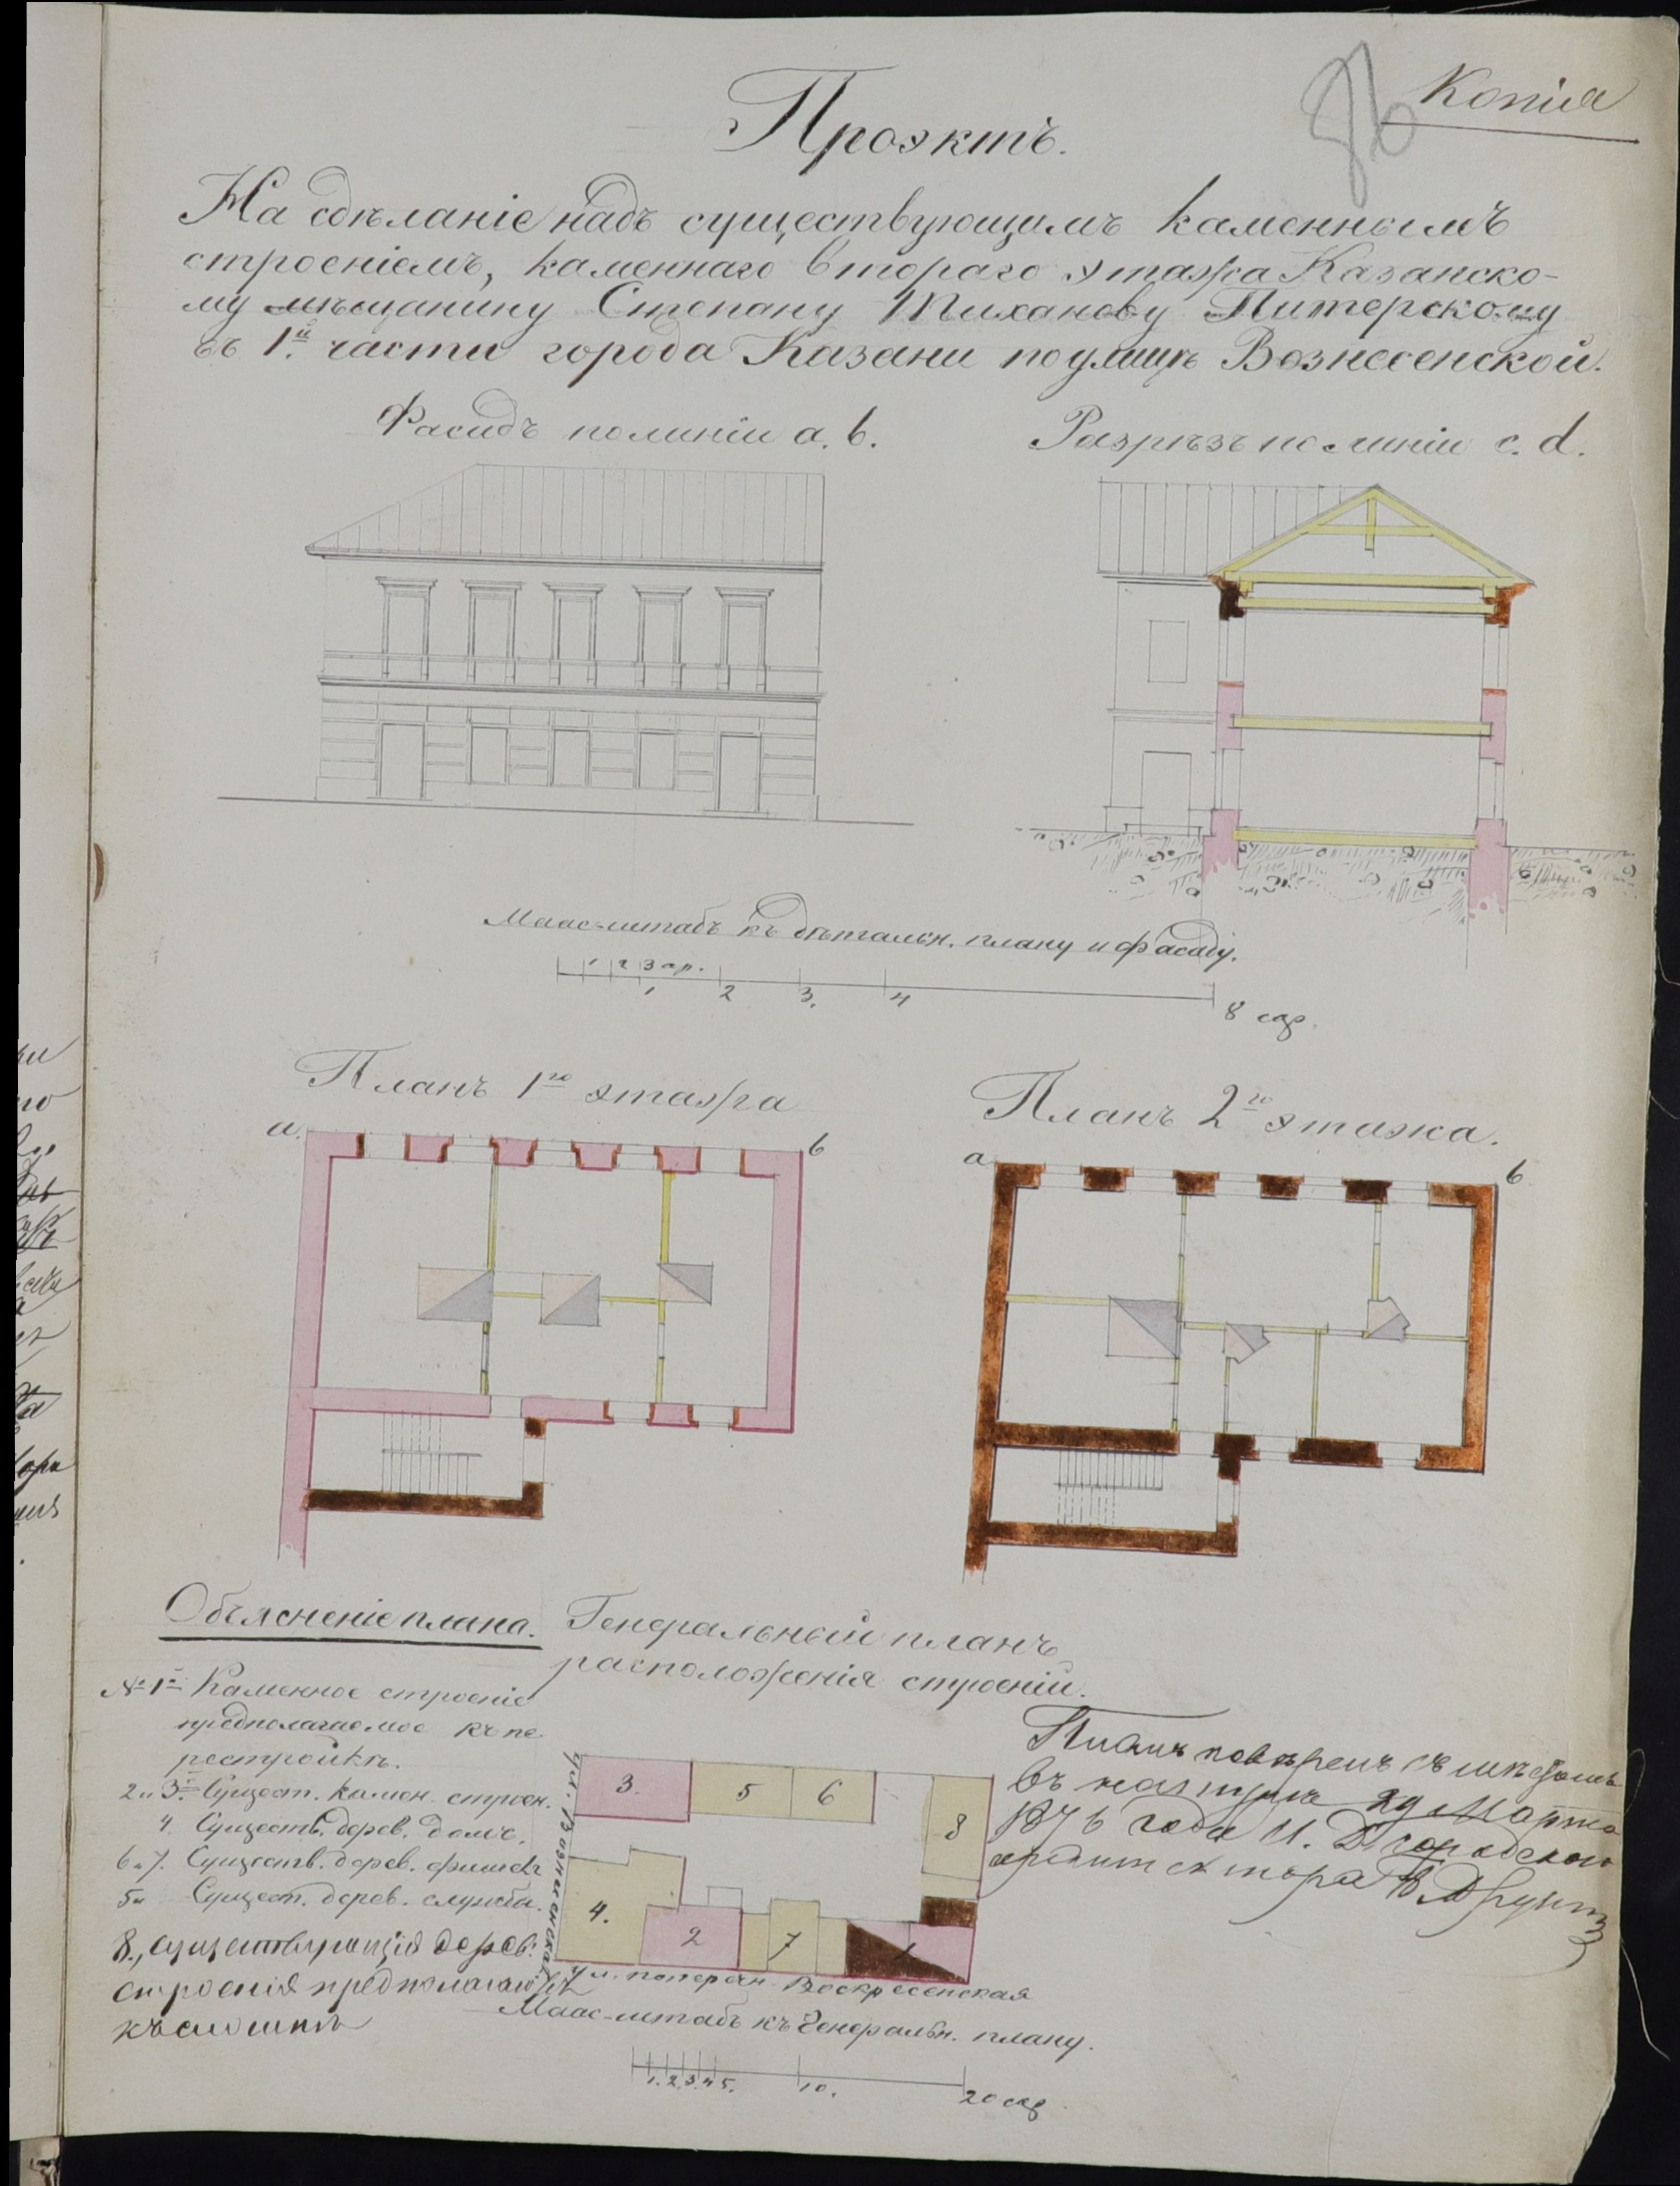 Копія
Проэктъ.
На сдѣланіе надъ существующимъ каменнымъ
строеніемъ, каменнаго втораго этажа Казанско-
му мѣщанину Степану Тиханову Питерскому
въ 1й. части города Казани по улицѣ Вознесенской.
Фасадъ по линіи a. b.
Разрѣзъ по линіи c. d.
Маас-штабъ къ дѣтальн. плану и фасаду.
1 2 3 ар.
1 2 3. 4 8 саж.
Планъ 1го этажа
Планъ 2го этажа.
a. b
a b
Объясненіе плана.
Генеральный планъ
расположенія строеній.
№ 1й Каменное строеніе
предполагаемое къ пе-
рестройкѣ.
2 и 3. Сущест. камен. строен.
4. Существ. дерев. домъ.
6 и 7. Существ. дерев. флигель
5й Сущест. дерев. служба.
8., существующія дерев.
строенія предполагают
къ сломкѣ
ул. Вознесенская
3. 5 6 8
4. 2 7 1
ул. поперечн. Воскресенская
Планъ повѣренъ съ мѣстомъ
въ натурѣ Марта
1876 года И. Д. городскаго
архитектора
Маас-штабъ къ Генеральн. плану.
1. 2. 3. 4 5. 10. 20 саж